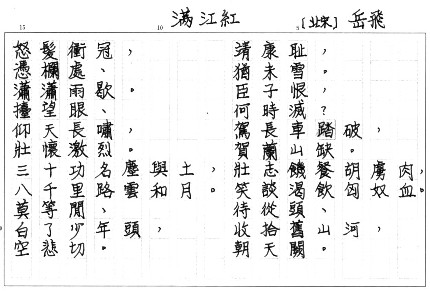 滿江紅 [北宋] 岳飛
15 10 5
怒髮衝冠，
憑欄處、
瀟瀟雨歇。
擡望眼、
仰天長嘯，
壯懷激烈。
三十功名塵與土，
八千里路雲和月。
莫等閒、
白了少年頭，
空悲切。
靖康恥，
猶未雪。
臣子恨，
何時滅？
駕長車踏破
賀蘭山缺。
壯志饑餐胡虜肉，
笑談渴飲匈奴血。
待從頭、
收拾舊山河，
朝天闕。